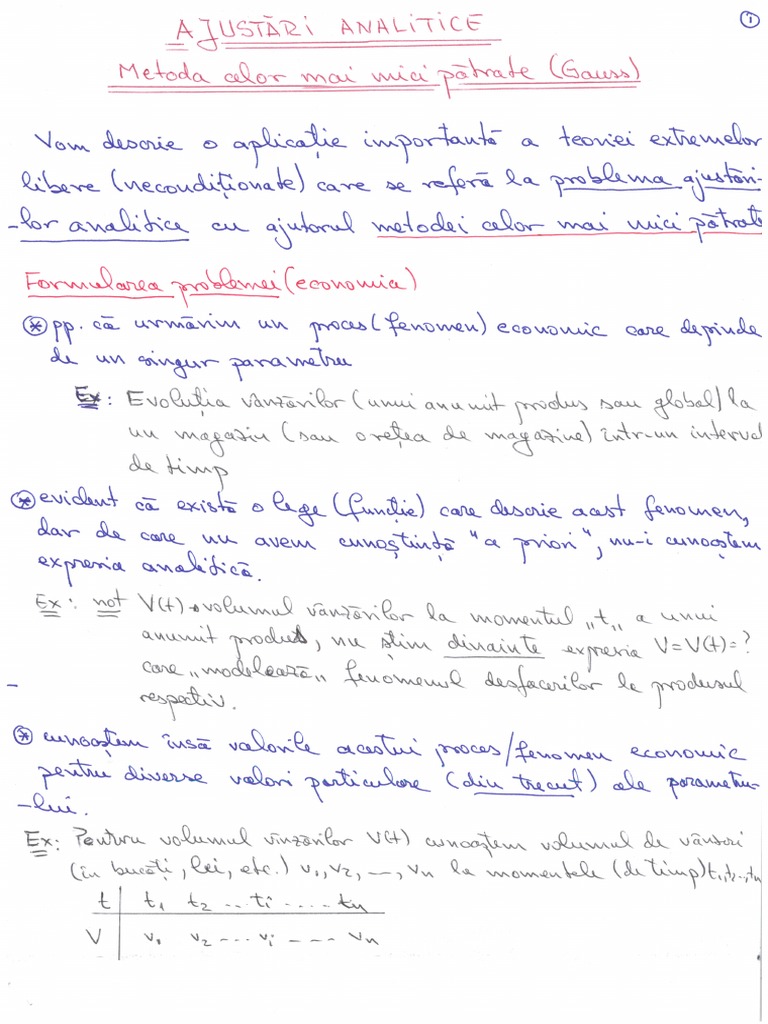 1
AJUSTĂRI ANALITICE
Metoda celor mai mici pătrate (Gauss)
Vom descrie o aplicație importantă a teoriei extremelor
libere (necondiționate) care se referă la problema ajustări-
-lor analitice cu ajutorul metodei celor mai mici pătrate
Formularea problemei (economia)
* pp. că urmărim un proces (fenomen) economic care depinde
de un singur parametru
Ex: Evoluția vânzărilor (unui anumit produs sau global) la
un magazin (sau o rețea de magazine) într-un interval
de timp
* evident că există o lege (funcție) care descrie acest fenomen,
dar de care nu avem cunoștință "a priori", nu-i cunoaștem
expresia analitică.
Ex: not V(t) → volumul vânzărilor la momentul „t„ a unui
anumit produs, nu știm dinainte expresia V=V(t)=?
care „modelează„ fenomenul desfacerilor la produsul
respectiv.
* cunoaștem însă valorile acestui proces/fenomen economic
pentru diverse valori particulare (din trecut) ale parametru-
-lui.
Ex: Pentru volumul vînzărilor V(t) cunoaștem volumul de vânzări
(în bucăți, lei, etc.) v₁, v₂, ..., vn la momentele (de timp) t₁, t₂, ..., tn
t | t₁ t₂ ... ti ..... tn
V | v₁ v₂ ... vi .... vn